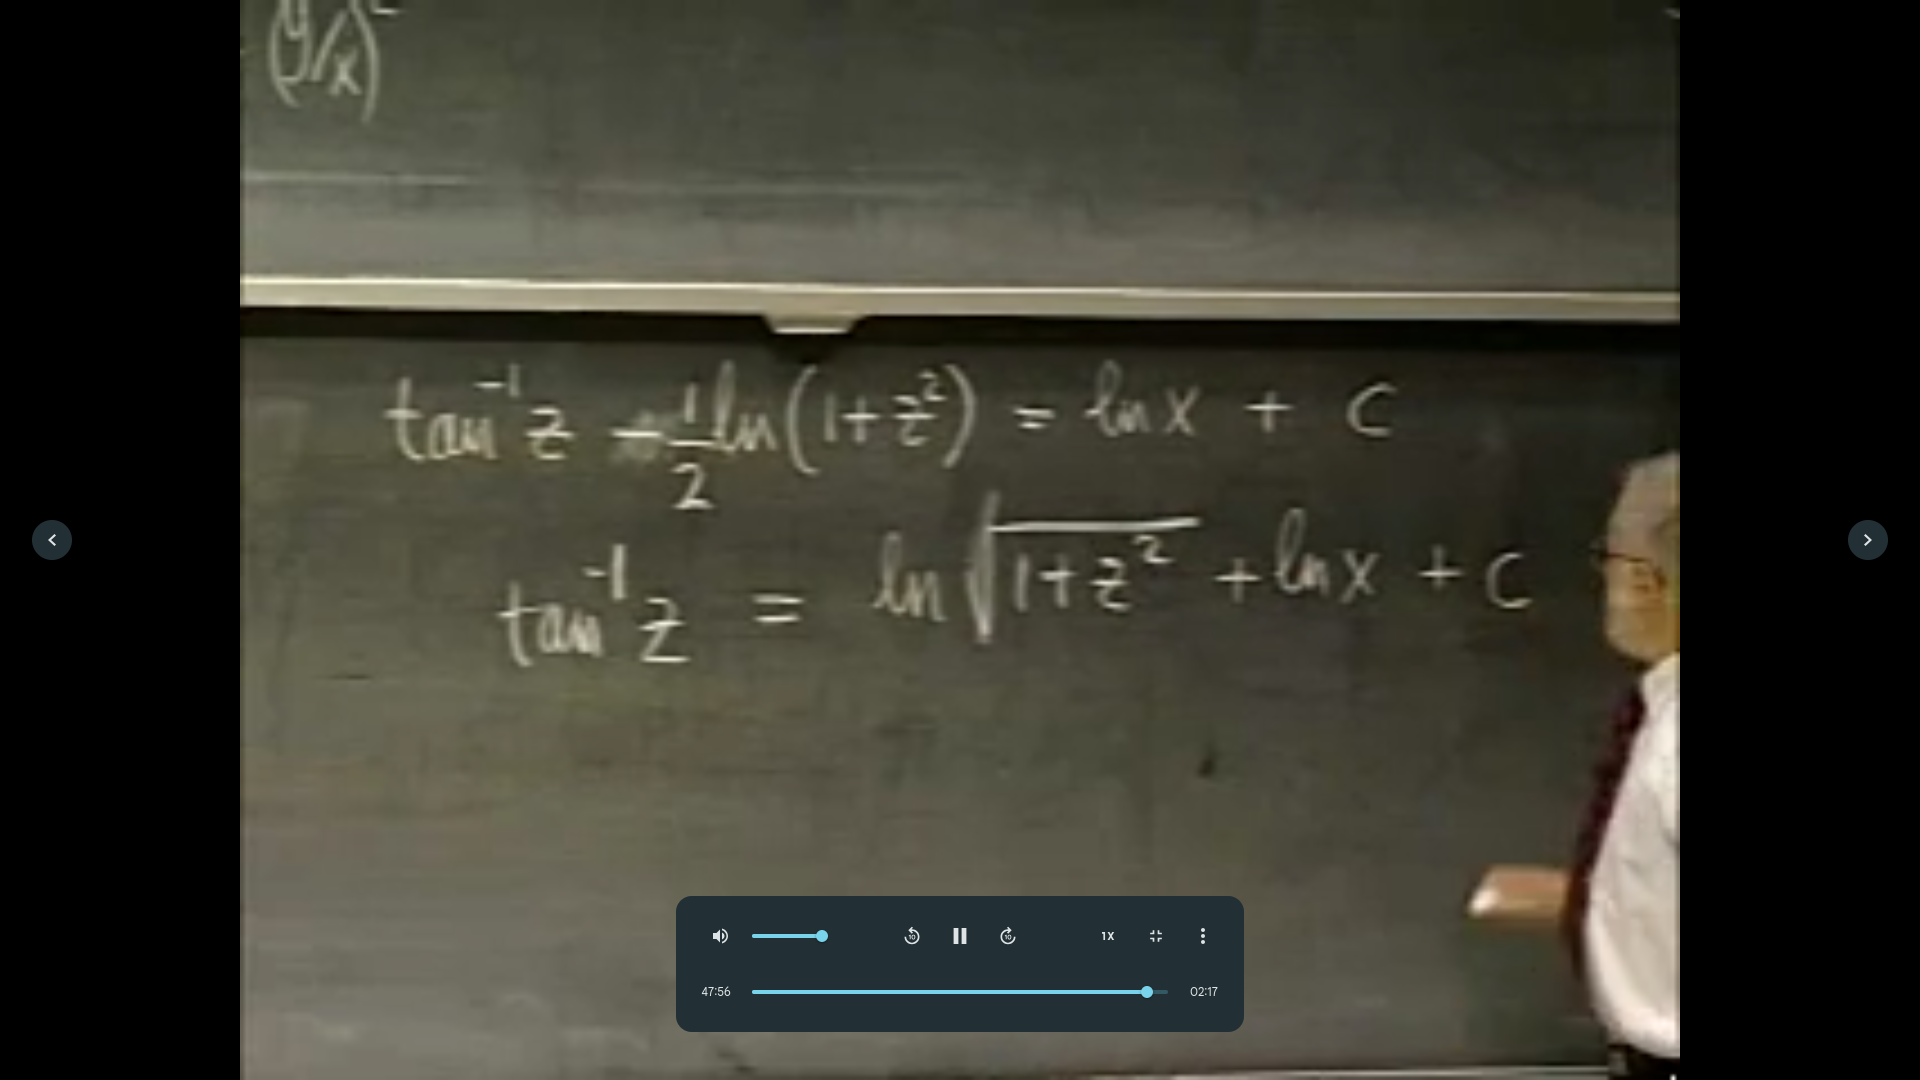 (y/x)²
tan⁻¹ z - 1/2 ln(1+z²) = ln x + c
tan⁻¹ z = ln √(1+z²) + ln x + c
10
10
1X
47:56
02:17